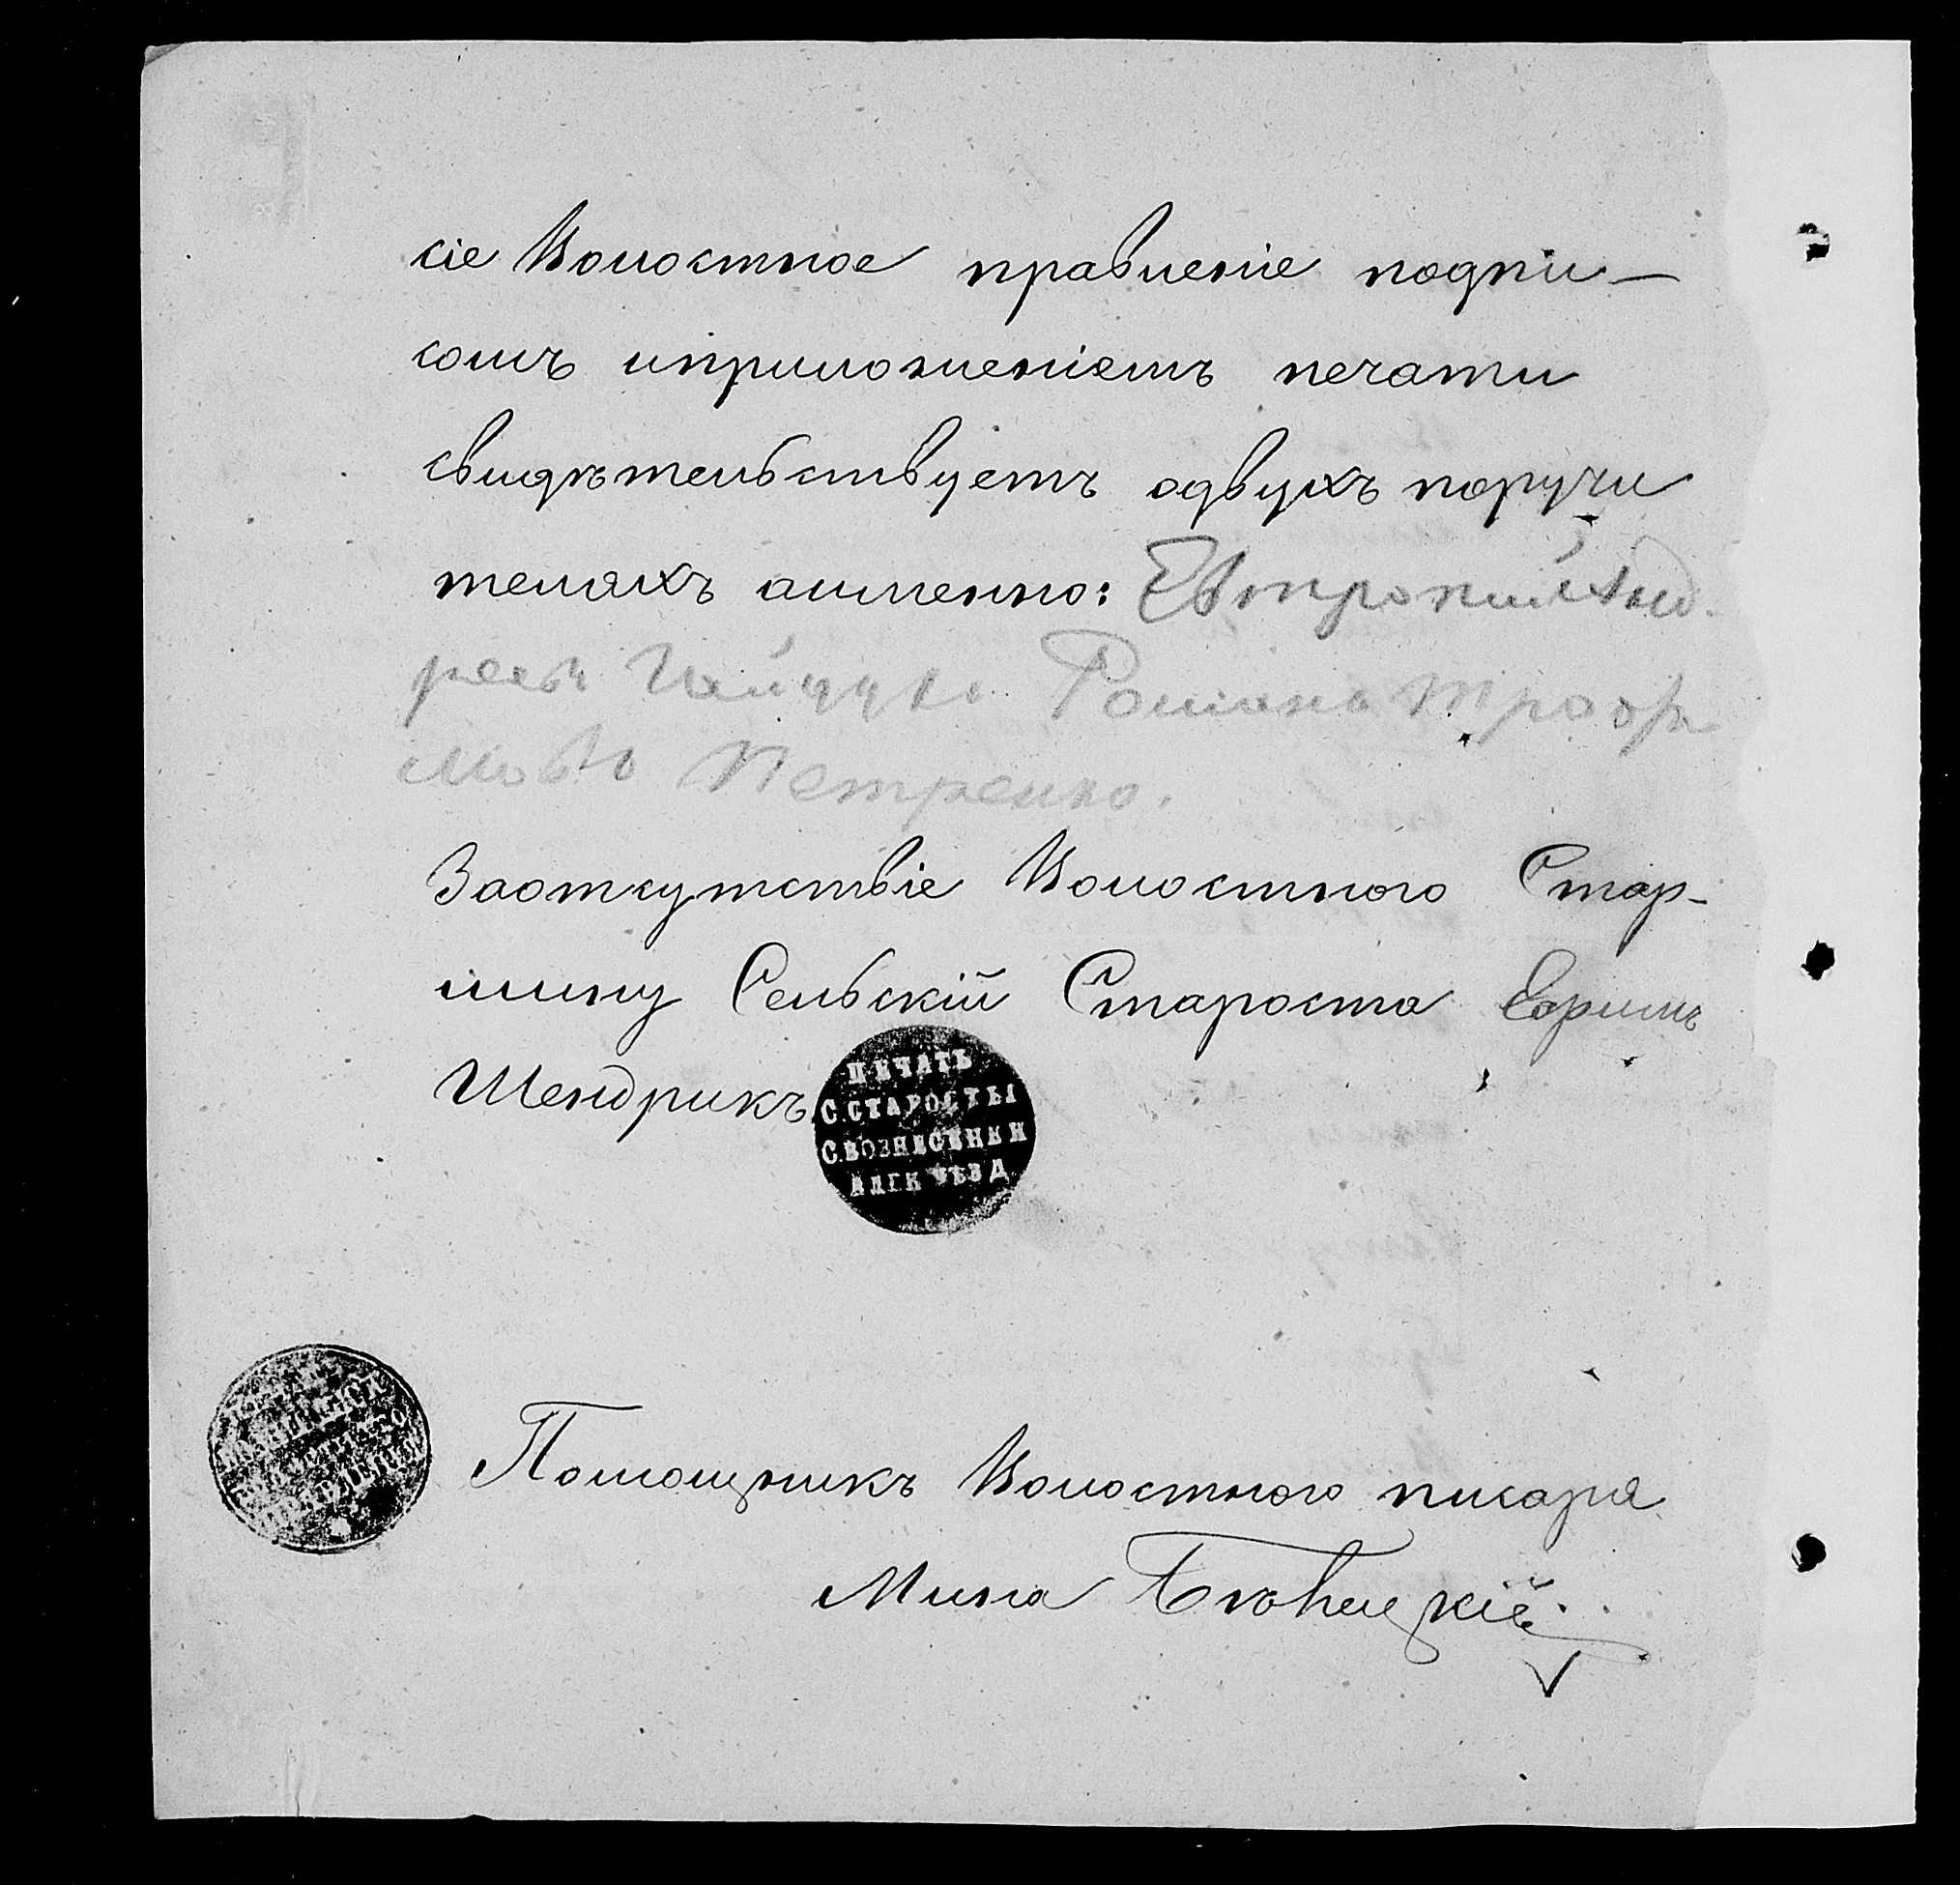 сіе Волостное правленіе подпи—
сомъ иприложеніемъ печати
свидѣтельствуетъ одвухъ поручи
теляхъ аименно: Евтропий Анд.
реевъ Романъ Троф
мовъ Петренко.
Заотсутствіе Волостного Стар-
шину Сельскій Староста Ефимъ
Шендрикъ
ПЕЧАТЬ
С. СТАРОСТЫ
С. ВОЗНЕСЕНКИ
АЛЕК УѢЗД
Помощникъ Волостного писаря
Мина Бѣлецкій